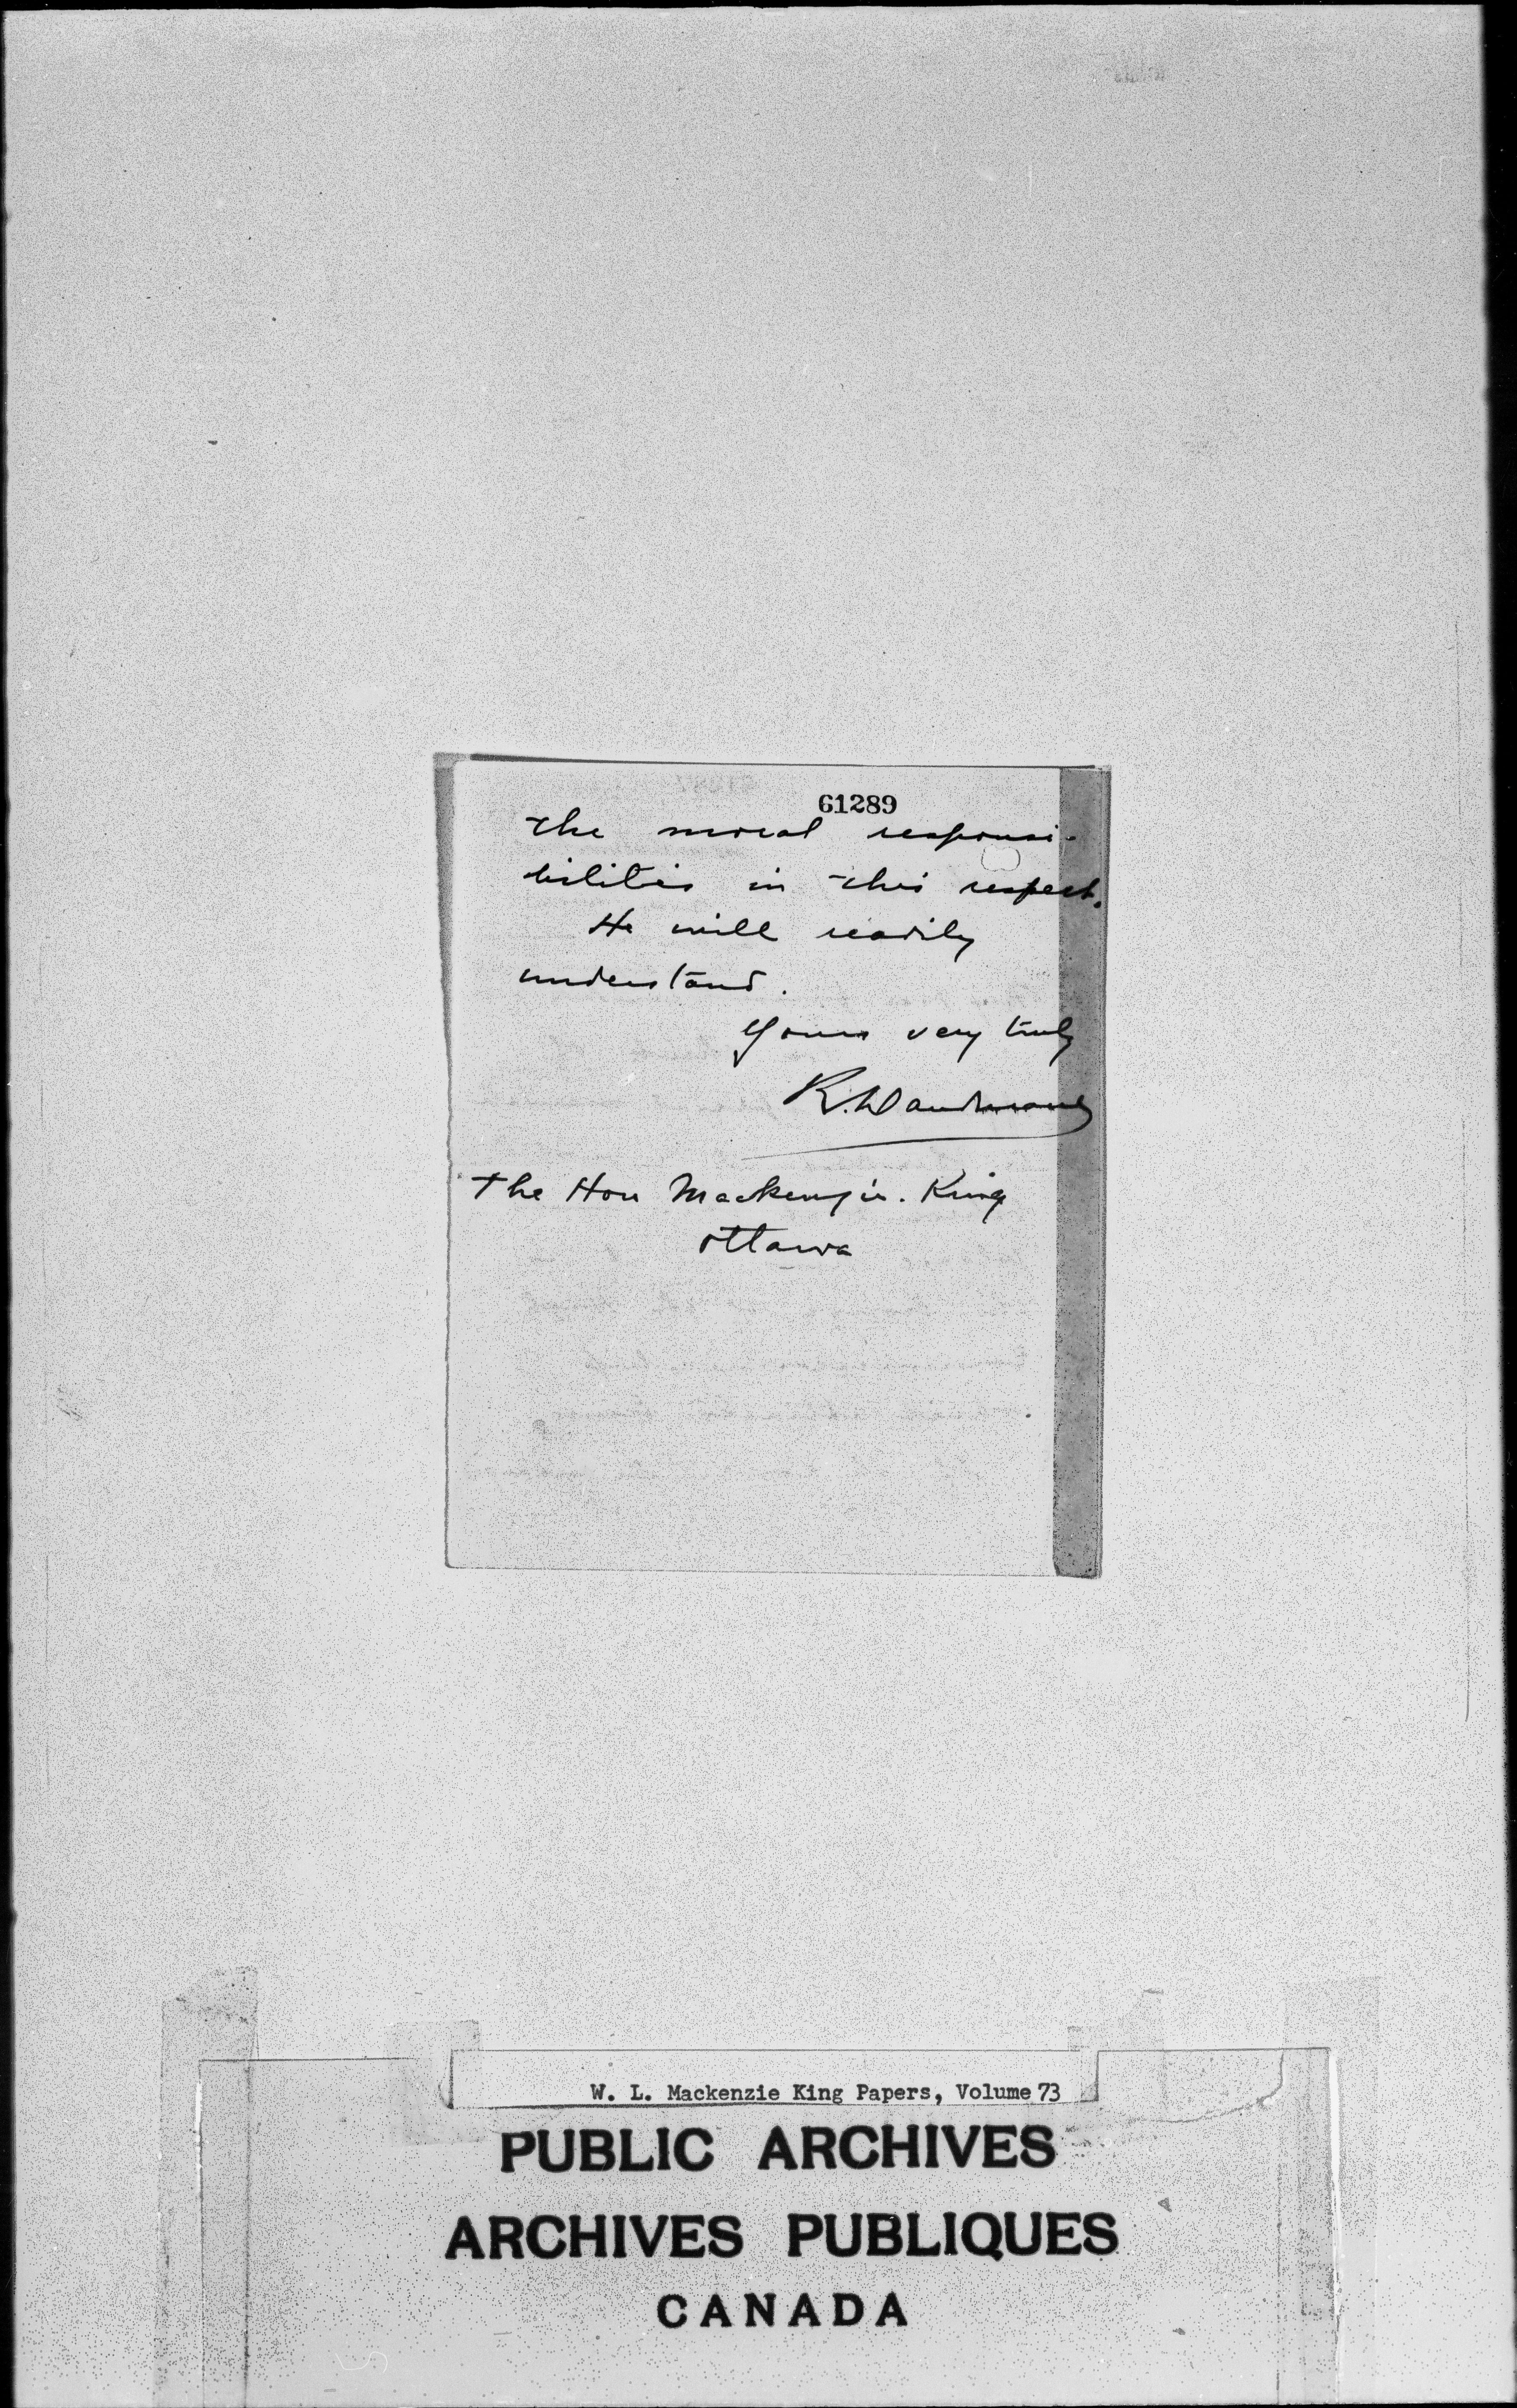 61289
the moral responsi-
bilities in this respect.
He will readily
understand.
Yours very truly
R. Dandurand
The Hon Mackenzie. King
Ottawa
W. L. Mackenzie King Papers, Volume 73
PUBLIC ARCHIVES
ARCHIVES PUBLIQUES
CANADA